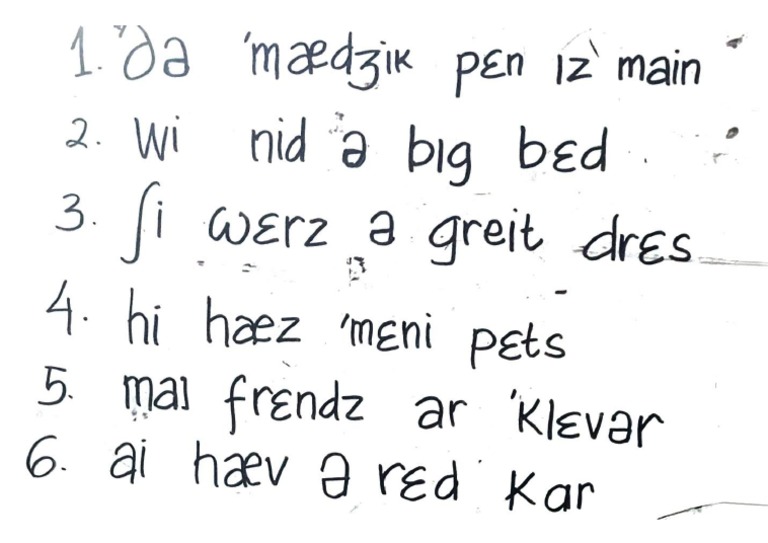 1. ðə ˈmædʒik pɛn ɪz main
2. wi nid ə bɪg bɛd
3. ʃi wɛrz ə greit drɛs
4. hi hæz ˈmɛni pɛts
5. maɪ frɛndz ar ˈklɛvər
6. ai hæv ə rɛd kar